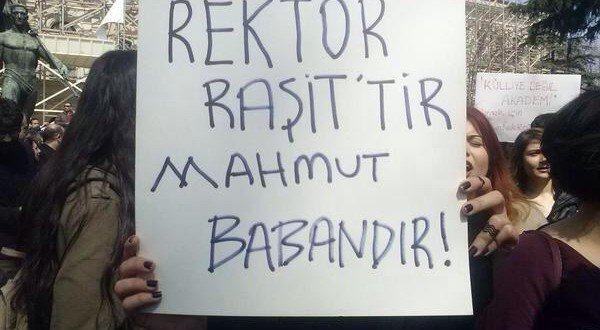 REKTÖR
RAŞİT'TİR
MAHMUT
BABANDIR!
"KÜLLİYE DEĞİL
AKADEMİ"